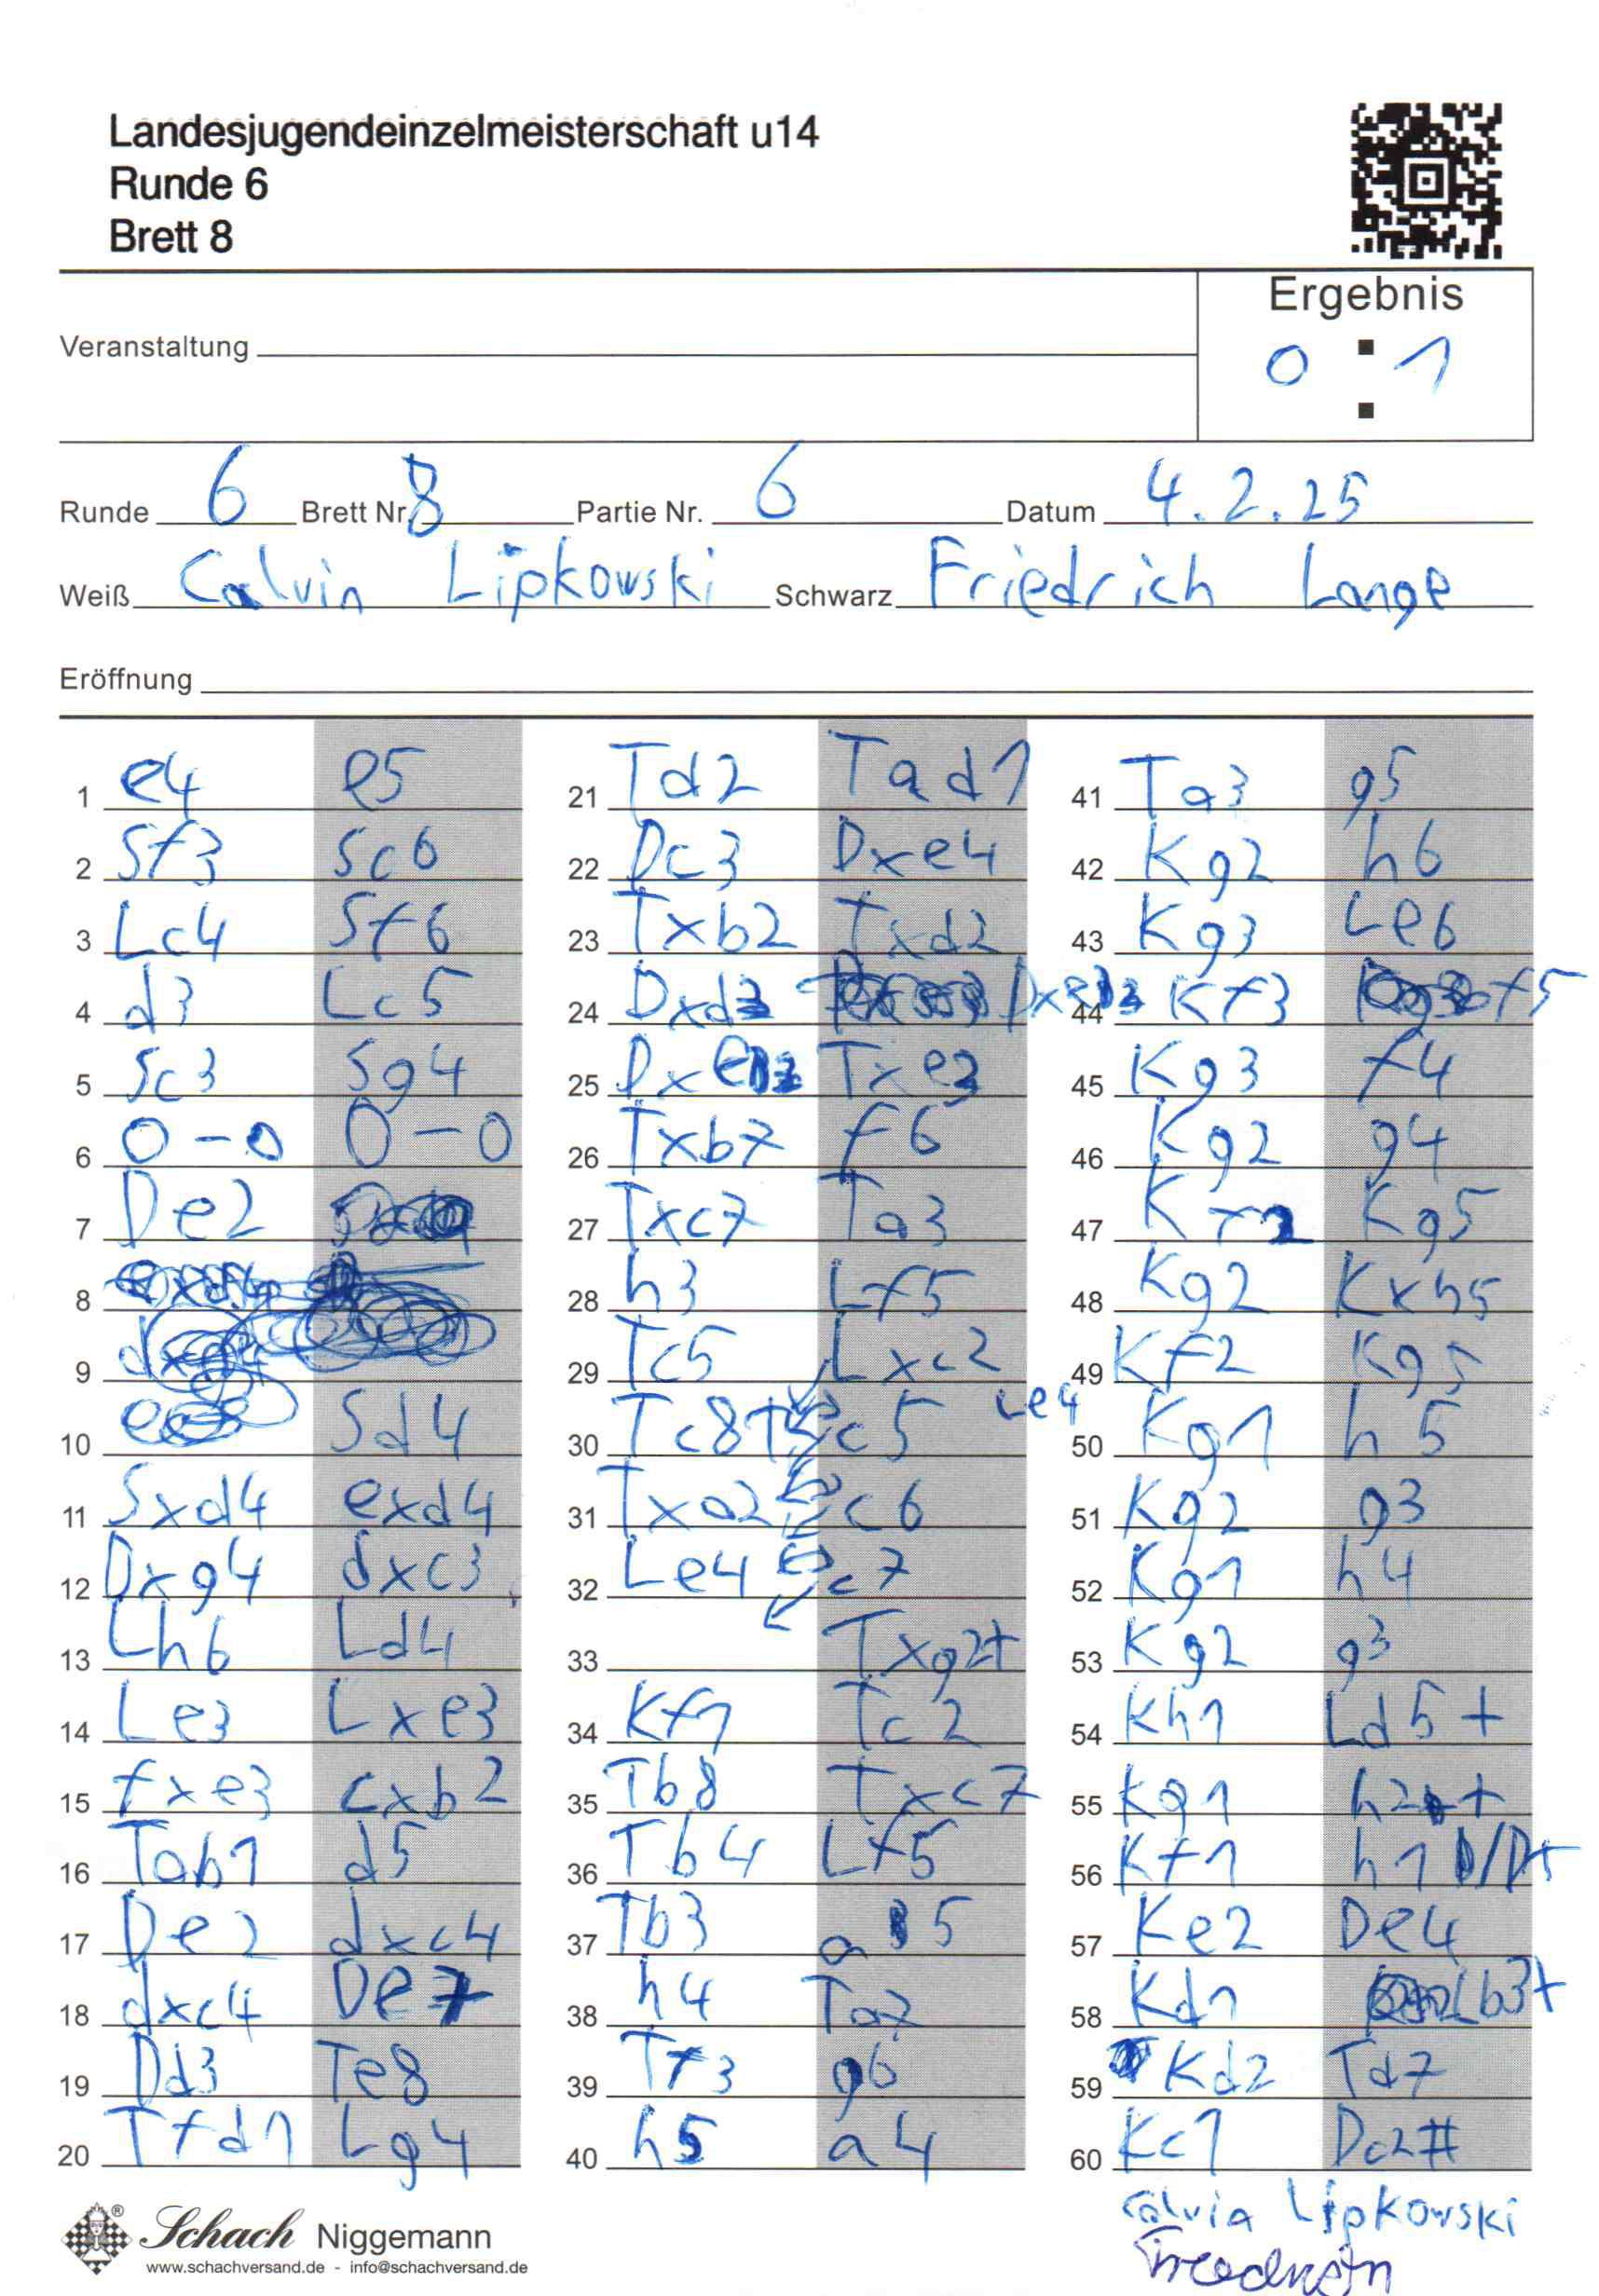 Landesjugendeinzelmeisterschaft u14
Runde 6
Brett 8
Ergebnis
Veranstaltung
0 : 1
Runde 6 Brett Nr. 8 Partie Nr. 6 Datum 4.2.25
Weiß Calvin Lipkowski Schwarz Friedrich Lange
Eröffnung
1 e4 e5
2 Sf3 Sc6
3 Lc4 Sf6
4 d3 Lc5
5 Sc3 Sg4
6 0-0 0-0
7 De2
8
9
10 Sd4
11 Sxd4 exd4
12 Dxg4 dxc3
13 Lh6 Ld4
14 Le3 Lxe3
15 fxe3 cxb2
16 Tab1 d5
17 De2 dxc4
18 dxc4 De7
19 Dd3 Te8
20 Tfd1 Lg4
21 Td2 Tad1
22 Dc3 Dxe4
23 Txb2 Txd2
24 Dxd2 Dxe3
25 Dxe3 Txe3
26 Txb7 f6
27 Txc7 Ta3
28 h3 Lf5
29 Tc5 Lxc2
30 Tc8+ c5 Le4
31 Txa2 c6
32 Le4 c7
33 Txg2+
34 Kf1 Tc2
35 Tb8 Txc7
36 Tb4 Lf5
37 Tb3 a5
38 h4 Ta7
39 Tf3 g6
40 h5 a4
41 Ta3 g5
42 Kg2 h6
43 Kg3 Le6
44 Kf3 f5
45 Kg3 f4
46 Kg2 g4
47 Kf2 Kg5
48 Kg2 Kxh5
49 Kf2 Kg5
50 Kg1 h5
51 Kg2 g3
52 Kg1 h4
53 Kg2 g3
54 Kh1 Ld5+
55 Kg1 h2+
56 Kf1 h1D/D+
57 Ke2 De4
58 Kd1 Lb3+
59 Kd2 Td7
60 Kc1 Dc2#
Calvin Lipkowski
Schach Niggemann
www.schachversand.de - info@schachversand.de